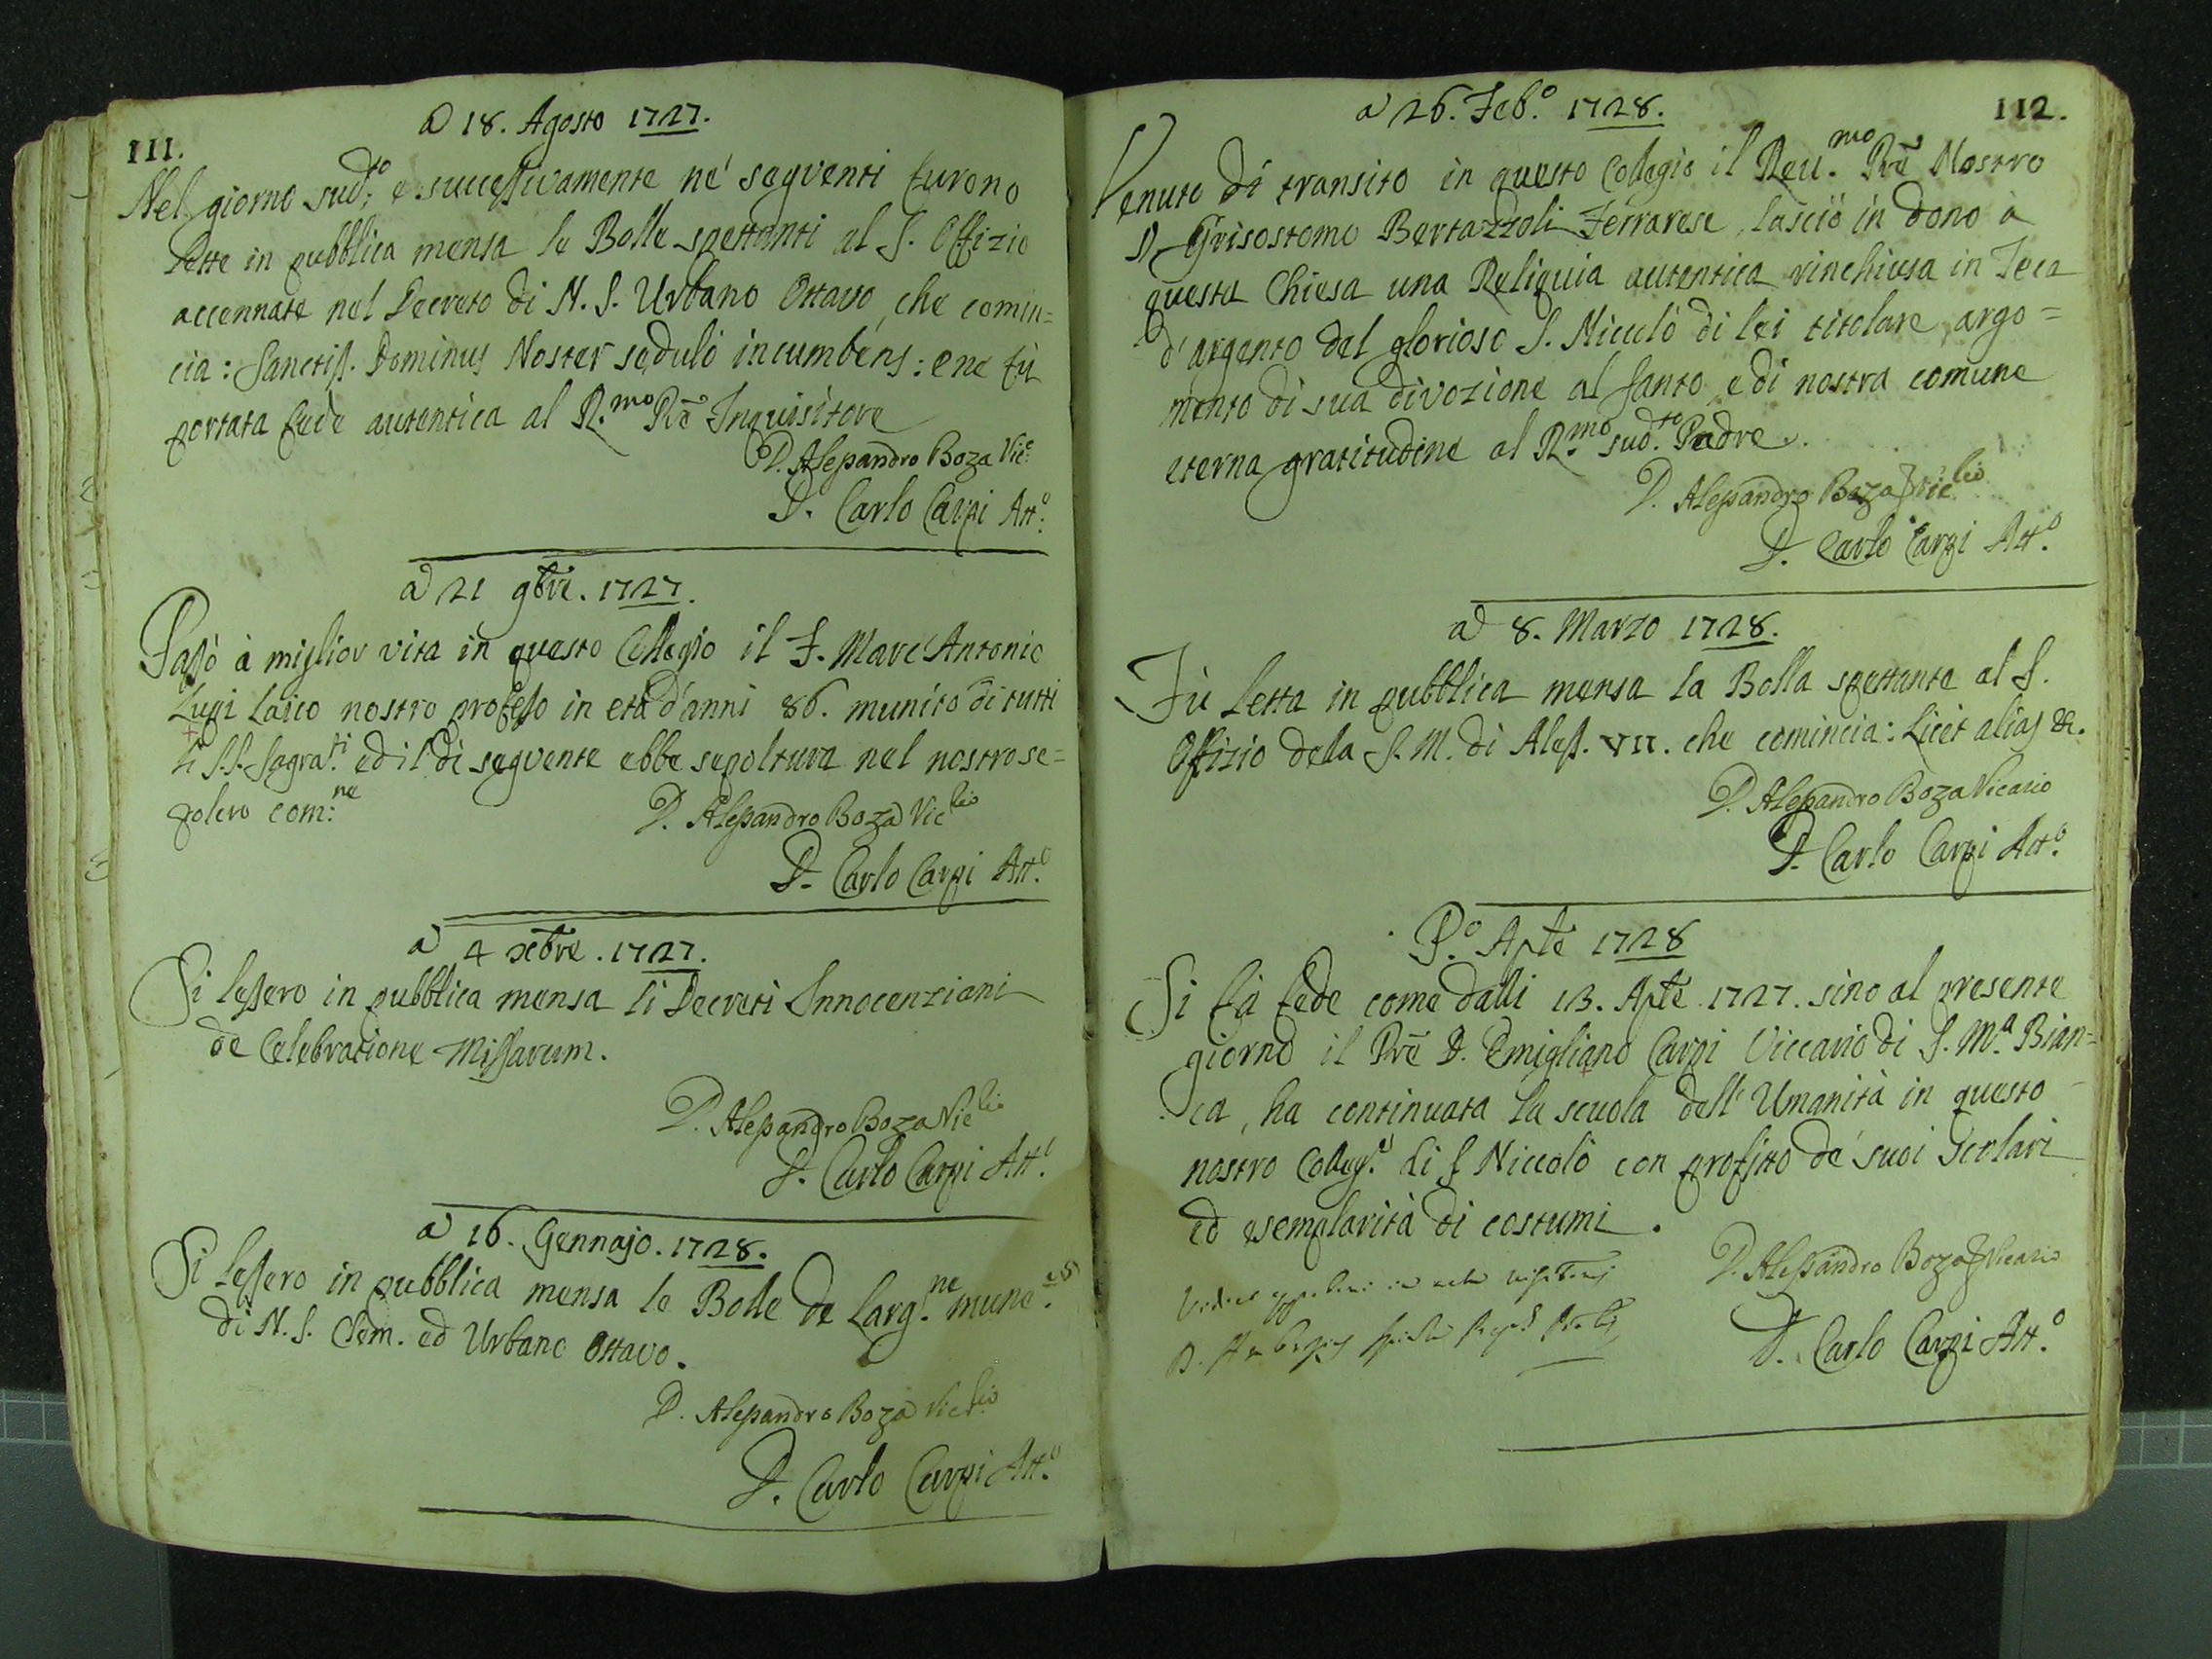 111.
a 18. Agosto 1727.
Nel giorno sud.to e successivamente ne' seguenti furono
lette in pubblica mensa le Bolle spettanti al S. Offizio
accennate nel Decreto di N. S. Urbano Ottavo, che comin=
cia: Sanctiss. Dominus Noster sedulò incumbens: e ne fù
portata fede autentica al R.mo Prē Inquisitore
D. Alessandro Boza Vic.e
D. Carlo Carpi Att.o
a 21 9bre. 1727.
Passò à miglior vita in questo Collegio il F. Marc'Antonio
Lupi Laico nostro professo in età d'anni 86. munito di tutti
li S.S. Sagra.ti ed il dì seguente ebbe sepoltura nel nostro se=
polcro com:ne
D. Alessandro Boza Vic.rio
D. Carlo Carpi Att.o
a 4 Xbre. 1727.
Si lessero in pubblica mensa li Decreti Innocenziani
de Celebratione Missarum.
D. Alessandro Boza Vic.rio
D. Carlo Carpi Att.o
a 16. Gennajo. 1728.
Si lessero in pubblica mensa le Bolle de Larg.ne mune.
di N. S. Clem. ed Urbano Ottavo.
D. Alessandro Boza Vic.rio
D. Carlo Carpi Att.o
112.
a 26. Feb.o 1728.
Venuto di transito in questo Collegio il Reu.mo Prē Nostro
D. Grisostomo Bertazzoli Ferrarese, lasciò in dono à
questa Chiesa una Reliquia autentica rinchiusa in Teca
d'argento del glorioso S. Niccolò di lei titolare, argo=
mento di sua divozione al Santo, e di nostra comune
eterna gratitudine al R.mo sud.to Padre.
D. Alessandro Boza Vic.rio
D. Carlo Carpi Att.o
a 8. Marzo 1728.
Fù letta in pubblica mensa la Bolla spettante al S.
Offizio della S. M. di Aless. VII. che comincia: Licet alias &.
D. Alessandro Boza Vicario
D. Carlo Carpi Att.o
P.o Aple 1728
Si fà fede come dalli 13. Aple 1727. sino al presente
giorno il Prē D. Emigliano Carpi Viccario di S. M.a Bian=
ca, ha continuata la scuola dell'Umanità in questo
nostro Colleg.o di S. Niccolò con profitto de' suoi Scolari
ed esemplarità di costumi.
D. Alessandro Boza Vicario
D. Carlo Carpi Att.o